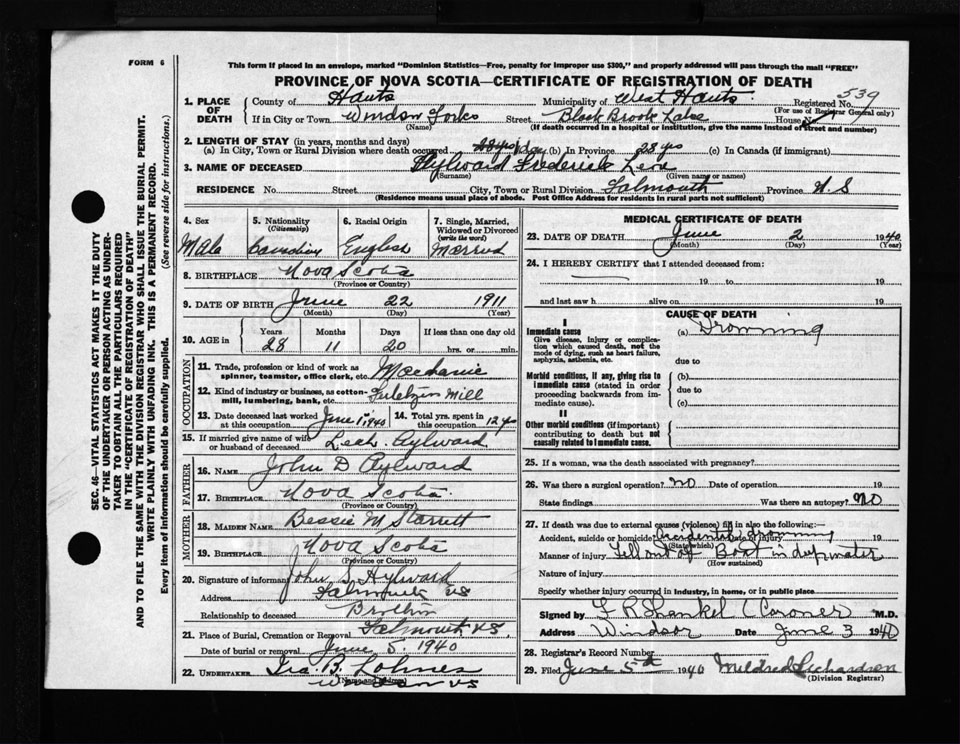 FORM 6
This form if placed in an envelope, marked "Dominion Statistics—Free, penalty for improper use $300," and properly addressed will pass through the mail "FREE"
PROVINCE OF NOVA SCOTIA—CERTIFICATE OF REGISTRATION OF DEATH
539
1. PLACE OF DEATH
County of Hants Municipality of West Hants. Registered No.
(For use of Registrar General only)
If in City or Town Windsor Forks Street Black Brook Lake House No.
(Name) (If death occurred in a hospital or institution, give the name instead of street and number)
2. LENGTH OF STAY (in years, months and days)
(a) In City, Town or Rural Division where death occurred 1 day (b) In Province 28 yrs (c) In Canada (if immigrant)
3. NAME OF DECEASED Aylward Frederick
(Surname) (Given name or names)
RESIDENCE No. Street City, Town or Rural Division Falmouth Province N.S
(Residence means usual place of abode. Post Office Address for residents in rural parts not sufficient)
4. Sex
Male
5. Nationality
(Citizenship)
Canadian
6. Racial Origin
English
7. Single, Married, Widowed or Divorced
(write the word)
Married
8. BIRTHPLACE Nova Scotia
(Province or Country)
9. DATE OF BIRTH June 22 1911
(Month) (Day) (Year)
10. AGE in
Years Months Days If less than one day old
28 11 20 hrs. or min.
OCCUPATION
11. Trade, profession or kind of work as spinner, teamster, office clerk, etc. Mechanic
12. Kind of industry or business, as cotton-mill, lumbering, bank, etc. Mill
13. Date deceased last worked at this occupation June 1st, 1940
14. Total yrs. spent in this occupation 12 yrs
15. If married give name of wife or husband of deceased Aylward
FATHER
16. NAME John D Aylward
17. BIRTHPLACE Nova Scotia.
MOTHER
18. MAIDEN NAME Bessie M Starratt
19. BIRTHPLACE Nova Scotia
(Province or Country)
20. Signature of informant John S Aylward
Address Falmouth N.S
Relationship to deceased Brother
21. Place of Burial, Cremation or Removal Falmouth N.S,
Date of burial or removal June 5. 1940
22. UNDERTAKER Ira B. Lohnes
(Name and address)
Windsor N.S
MEDICAL CERTIFICATE OF DEATH
23. DATE OF DEATH June 2 1940
(Month) (Day) (Year)
24. I HEREBY CERTIFY that I attended deceased from:
19 to 19
and last saw h alive on 19
CAUSE OF DEATH
I
Immediate cause
Give disease, injury or complication which caused death, not the mode of dying, such as heart failure, asphyxia, asthenia, etc.
(a) Drowning
due to
Morbid conditions, if any, giving rise to immediate cause (stated in order proceeding backwards from immediate cause).
(b)
due to
(c)
II
Other morbid conditions (if important) contributing to death but not causally related to immediate cause.
25. If a woman, was the death associated with pregnancy?
26. Was there a surgical operation? NO Date of operation 19
State findings Was there an autopsy? NO
27. If death was due to external causes (violence) fill in also the following:—
Accident, suicide or homicide Accidental drowning Date of injury
(State which)
Manner of injury Fell out of Boat in deep water
(How sustained)
Nature of injury
Specify whether injury occurred in industry, in home, or in public place
Signed by F R Shankel (Coroner) M.D.
Address Windsor Date June 3 1940
28. Registrar's Record Number
29. Filed June 5th 1940 Mildred Richardson
(Division Registrar)
SEC. 46—VITAL STATISTICS ACT MAKES IT THE DUTY
OF THE UNDERTAKER OR PERSON ACTING AS UNDER-
TAKER TO OBTAIN ALL THE PARTICULARS REQUIRED
IN THE "CERTIFICATE OF REGISTRATION OF DEATH"
AND TO FILE THE SAME WITH THE DIVISION REGISTRAR WHO SHALL ISSUE THE BURIAL PERMIT.
WRITE PLAINLY WITH UNFADING INK. THIS IS A PERMANENT RECORD.
Every item of information should be carefully supplied. (See reverse side for instructions.)